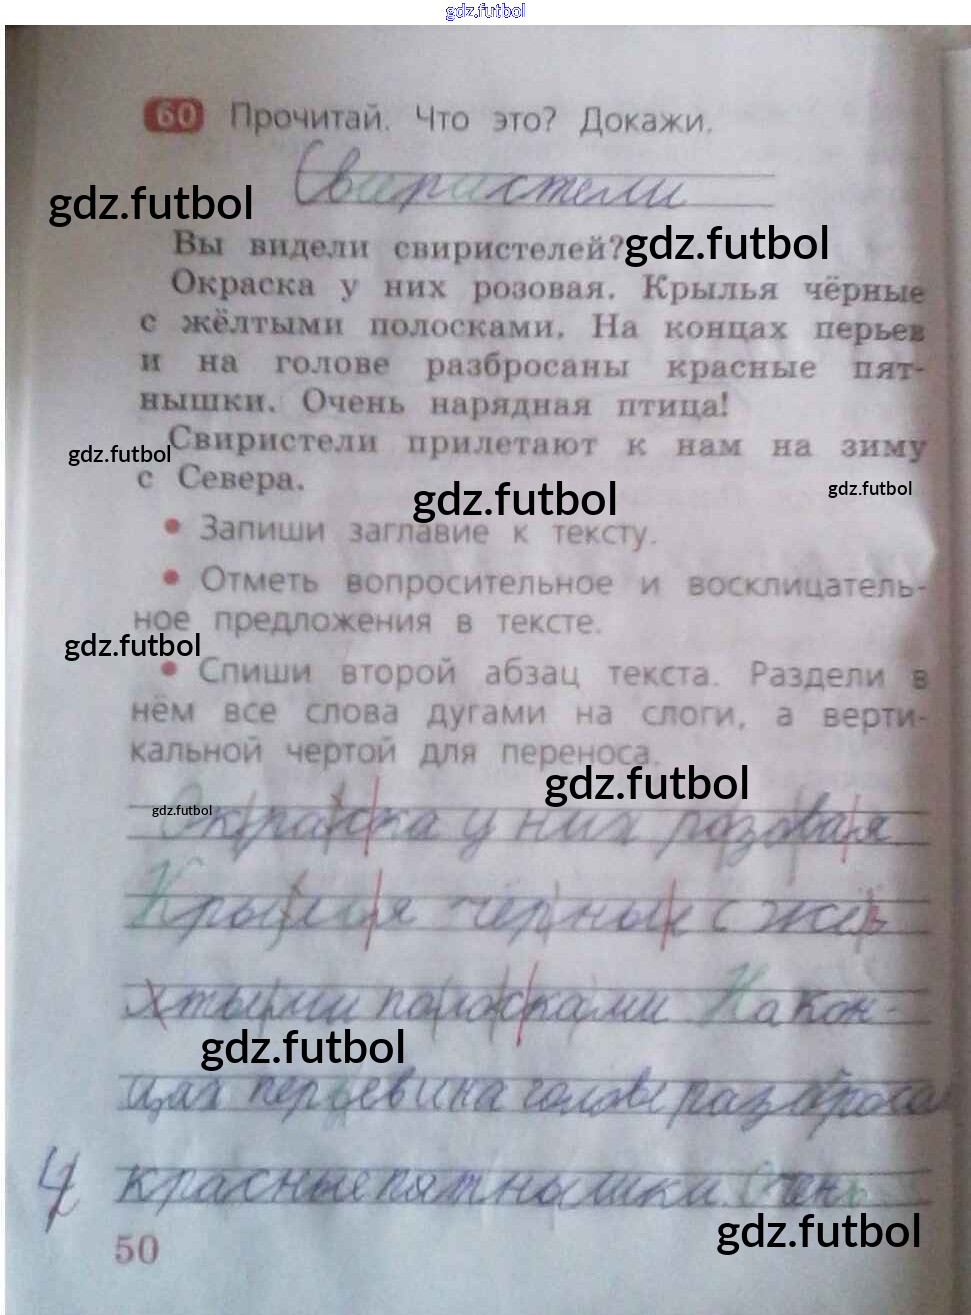 gdz.futbol
60 Прочитай. Что это? Докажи.
Свиристели
gdz.futbol
Вы видели свиристелей?
gdz.futbol
Окраска у них розовая. Крылья чёрные
с жёлтыми полосками. На концах перьев
и на голове разбросаны красные пят-
нышки. Очень нарядная птица!
Свиристели прилетают к нам на зиму
gdz.futbol
с Севера.
gdz.futbol
gdz.futbol
• Запиши заглавие к тексту.
• Отметь вопросительное и восклицатель-
ное предложения в тексте.
gdz.futbol
• Спиши второй абзац текста. Раздели в
нём все слова дугами на слоги, а верти-
кальной чертой для переноса.
gdz.futbol
gdz.futbol
Окраска у них розовая
Крылья чёрные с
тыми полосками На кон-
gdz.futbol
цах перьев и на голове
4 красные пятнышки. Очень
gdz.futbol
50